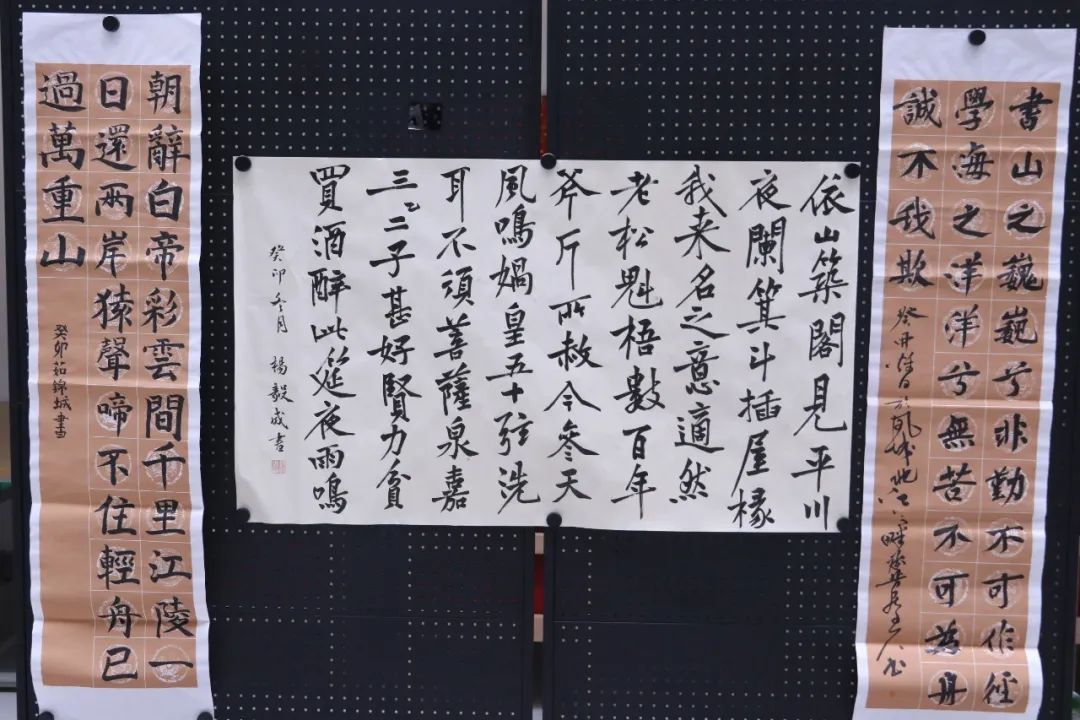 書山之巍巍兮非勤不可作徑
學海之洋洋兮無苦不可為舟
誠不我欺
依山築閣見平川
夜闌箕斗插屋椽
我来名之意適然
老松魁梧數百年
斧斤所赦今參天
風鳴媧皇五十弦洗
耳不須菩薩泉嘉
三二子甚好賢力貧
買酒醉此筵夜雨鳴
癸卯冬月 楊毅成書
朝辭白帝彩雲間千里江陵一
日還兩岸猿聲啼不住輕舟已
過萬重山
癸卯茹錦城書